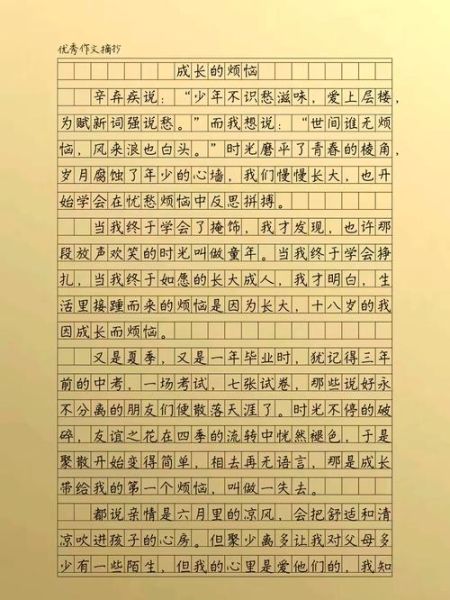 优秀作文摘抄
成长的烦恼
辛弃疾说：“少年不识愁滋味，爱上层楼，
为赋新词强说愁。”而我想说：“世间谁无烦
恼，风来浪也白头。”时光磨平了青春的棱角，
岁月腐蚀了年少的心墙，我们慢慢长大，也开
始学会在忧愁烦恼中反思拼搏。
当我终于学会了掩饰，我才发现，也许那
段放声欢笑的时光叫做童年。当我终于学会挣
扎，当我终于如愿的长大成人，我才明白，生
活里接踵而来的烦恼是因为长大，十八岁的我
因成长而烦恼。
又是夏季，又是一年毕业时，犹记得三年
前的中考，一场考试，七张试卷，那些说好永
不分离的朋友们便散落天涯了。时光不停的破
碎，友谊之花在四季的流转中恍然褪色，于是
聚散开始变得简单，相去再无语言，那是成长
带给我的第一个烦恼，叫做一失去。
都说亲情是六月里的凉风，会把舒适和清
凉吹进孩子的心房。但聚少离多让我对父母多
少有一些陌生，但我的心里是爱他们的，我知